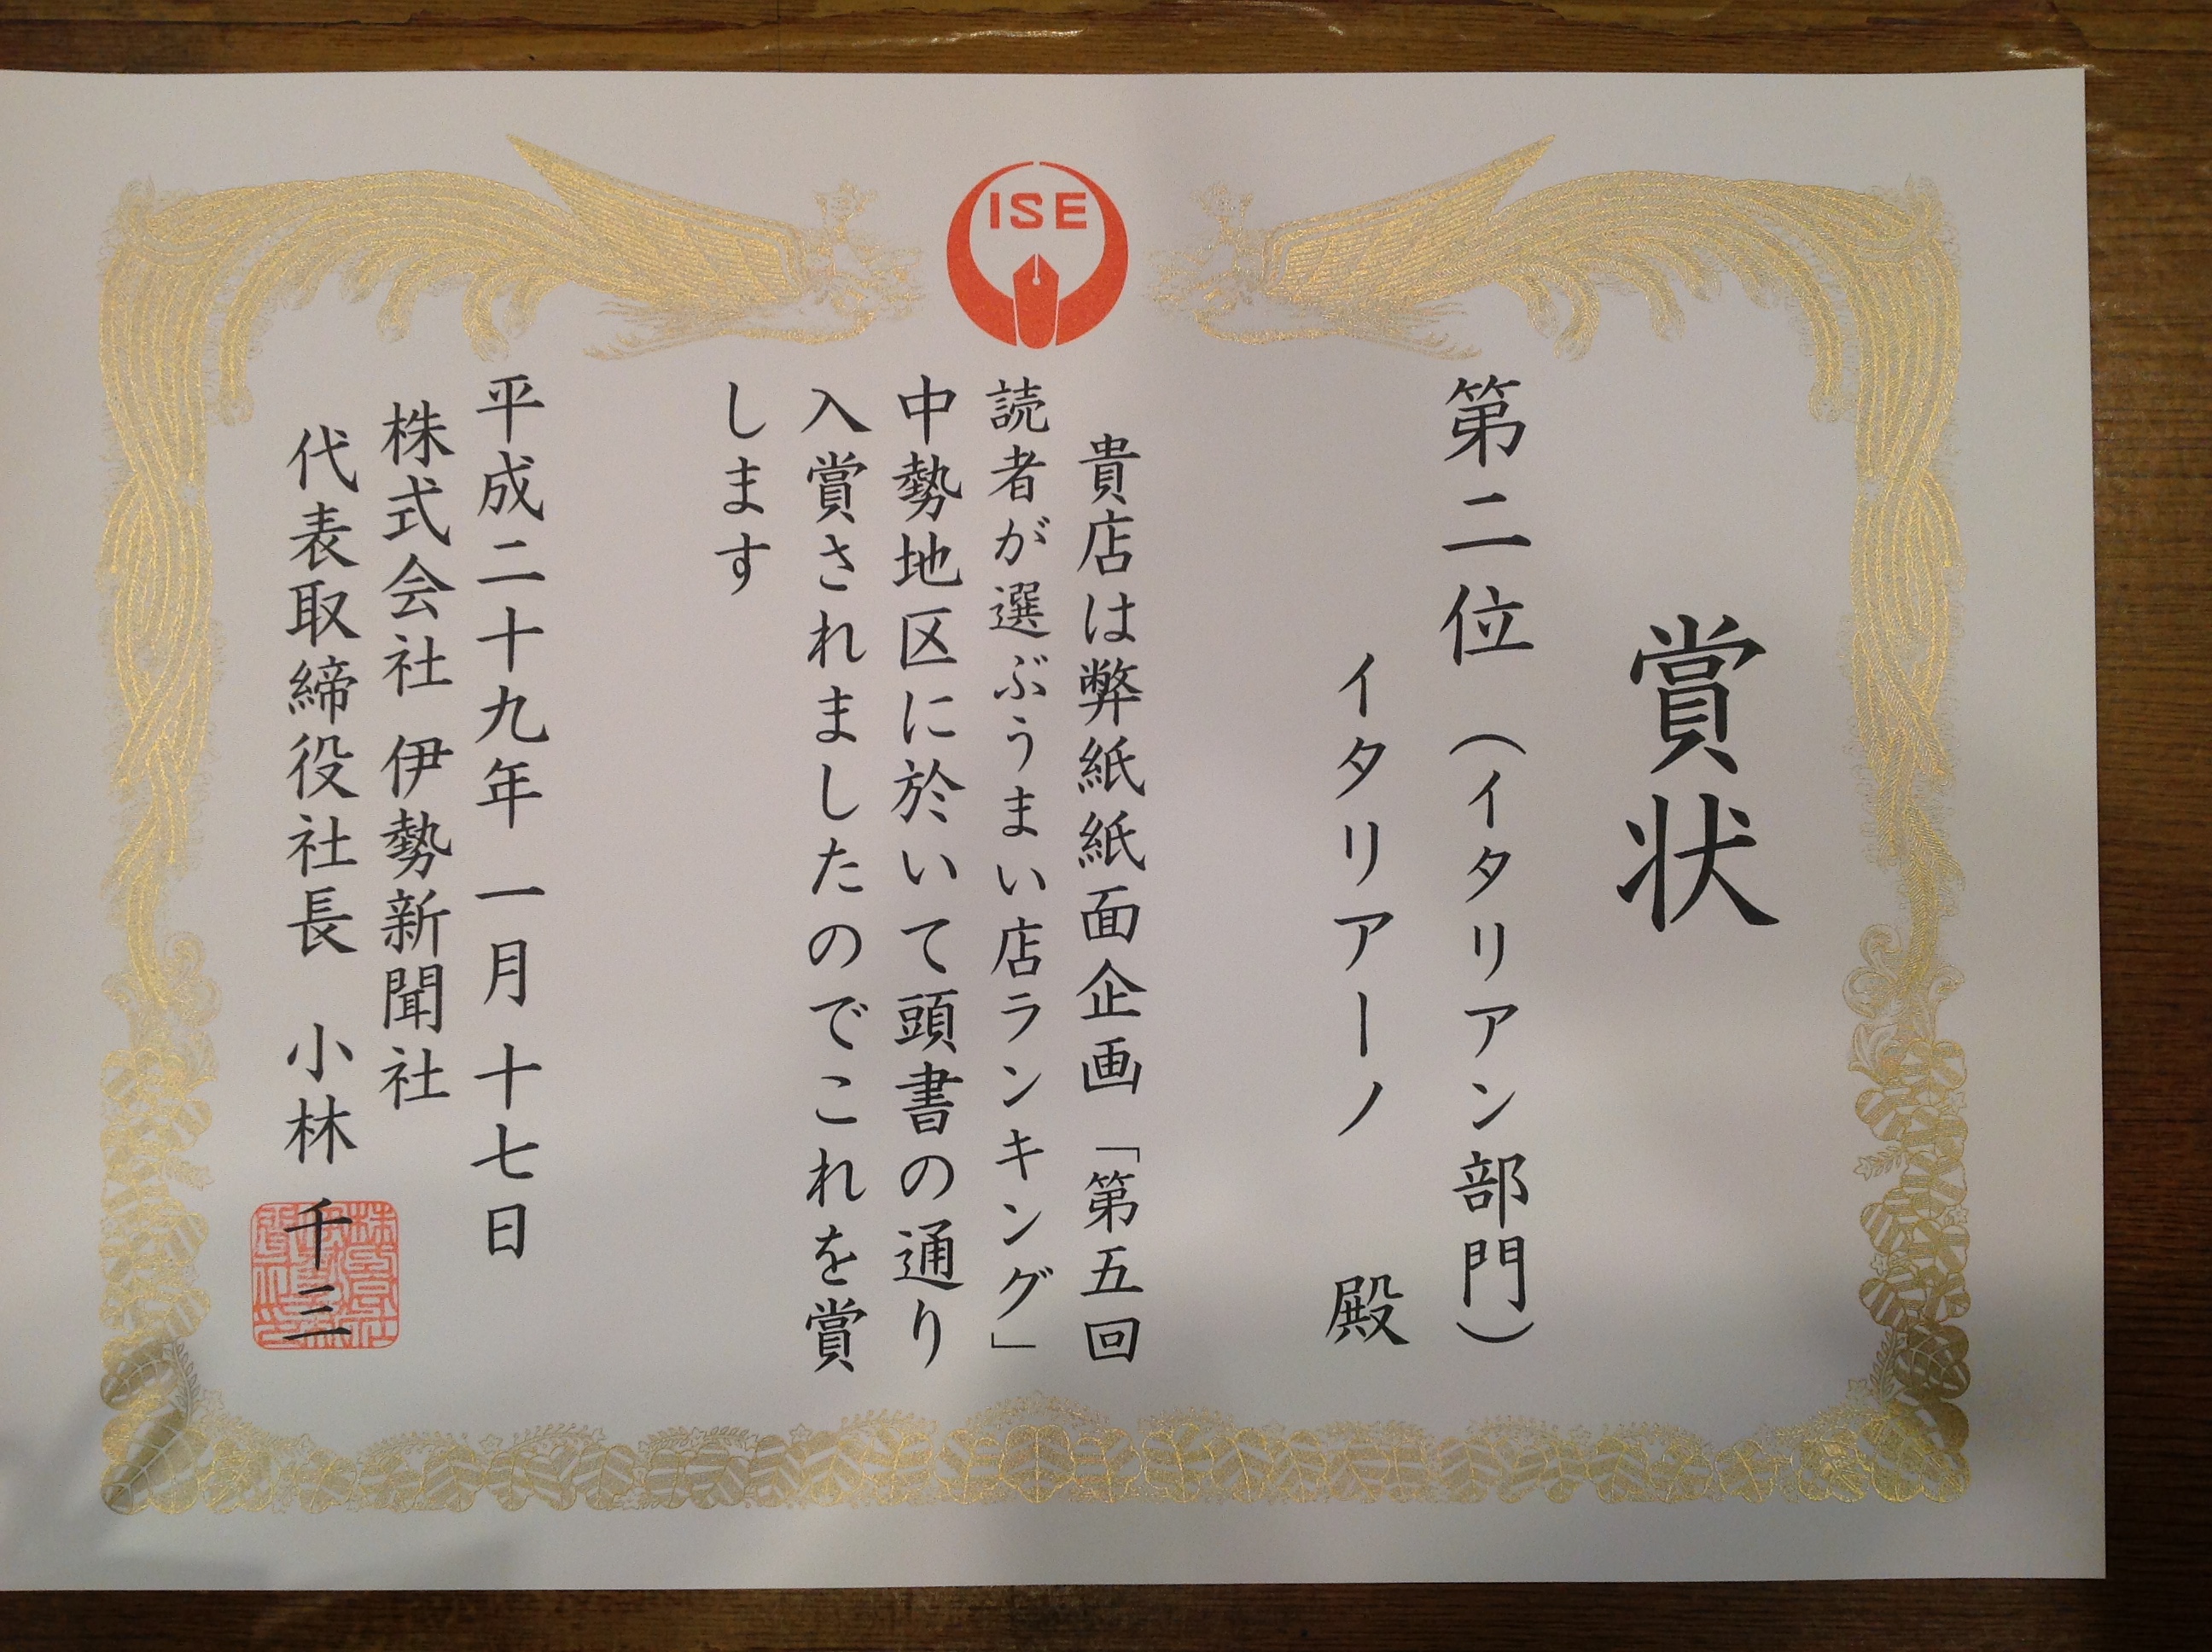 ISE
賞状
第二位（イタリアン部門）
イタリアーノ　殿
貴店は弊紙紙面企画「第五回
読者が選ぶうまい店ランキング」
中勢地区に於いて頭書の通り
入賞されましたのでこれを賞
します
平成二十九年 一月 十七日
株式会社 伊勢新聞社
代表取締役社長　小林 千三